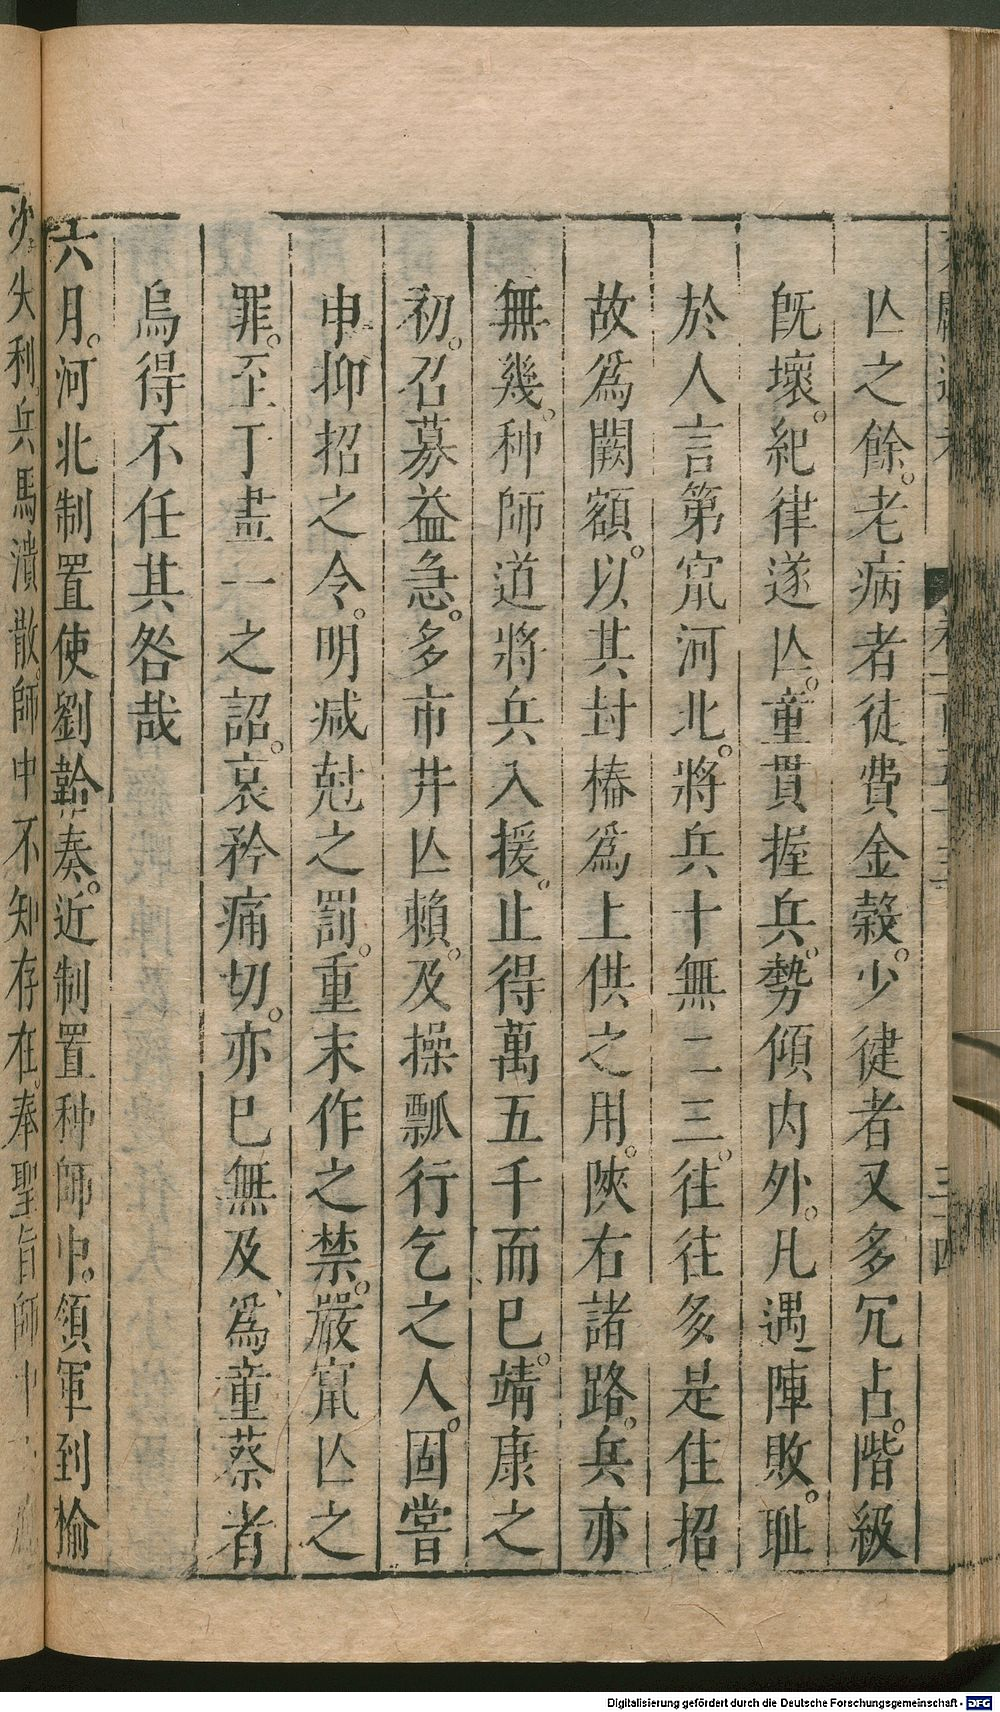 亾之餘。老病者徒費金穀。少健者又多冗占。階級
旣壞。紀律遂亾。童貫握兵。勢傾内外。凡遇陣敗。耻
於人言第竄河北。將兵十無二三。往往多是住招
故爲闕額。以其封樁爲上供之用。陜右諸路。兵亦
無幾。种師道將兵入援。止得萬五千而已。靖康之
初。召募益急。多市井亾賴。及操瓢行乞之人。固嘗
申抑招之令。明减尅之罰。重末作之禁。嚴竄亾之
罪。至丁盡一之詔。哀矜痛切。亦已無及、爲童蔡者
烏得不任其咎哉
六月。河北制置使劉韐奏。近制置种師中。領軍到榆
次失利。兵馬潰散。師中不知存在。奉聖旨師中
Digitalisierung gefördert durch die Deutsche Forschungsgemeinschaft - DFG